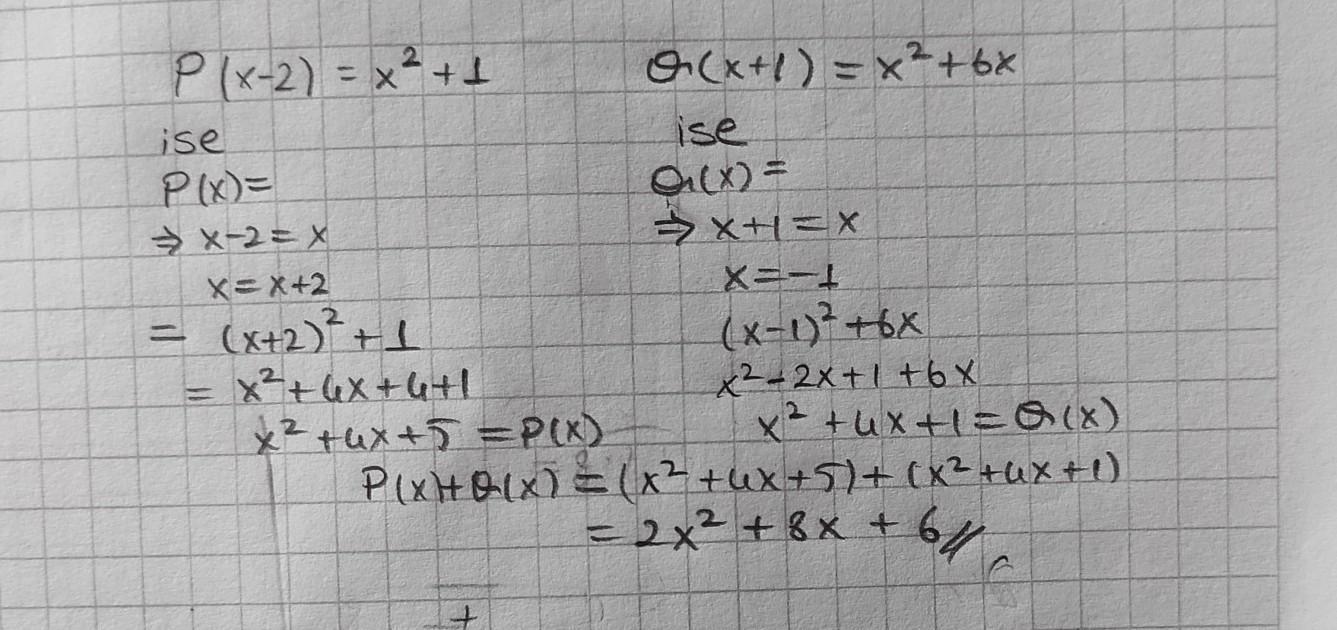 P(x-2) = x² + 1
ise
P(x)=
⇒ x-2 = x
x = x+2
= (x+2)² + 1
= x² + 4x + 4+1
x² + 4x + 5 = P(x)
Q(x+1) = x² + 6x
ise
Q(x) =
⇒ x+1 = x
x = -1
(x-1)² + 6x
x² - 2x + 1 + 6x
x² + 4x + 1 = Q(x)
P(x)+Q(x) = (x² + 4x + 5) + (x² + 4x + 1)
= 2x² + 8x + 6 //
+